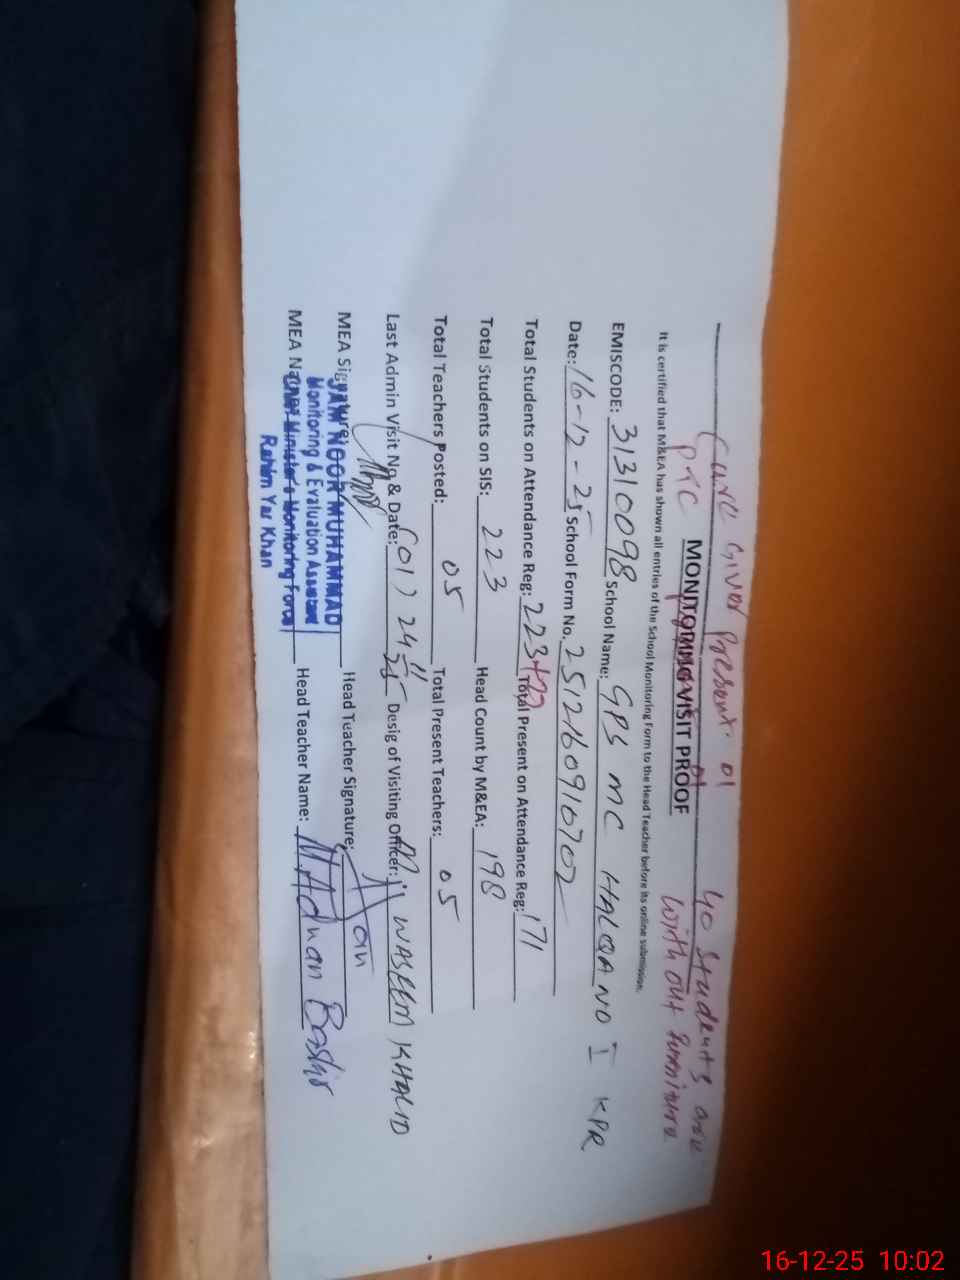 Care Giver Present: 01
40 students are
without furniture
PTC
MONITORING VISIT PROOF
It is certified that M&EA has shown all entries of the School Monitoring Form to the Head Teacher before its online submission.
EMISCODE: 31310098 School Name: GPS MC HALQA NO I KPR
Date: 16-12-25 School Form No. 2512160916702
Total Students on Attendance Reg: 223 Total Present on Attendance Reg: 171
Total Students on SIS: 223 Head Count by M&EA: 198
Total Teachers Posted: 05 Total Present Teachers: 05
Last Admin Visit No & Date: (01) 24 11 25 Desig of Visiting Officer: WASEEM KHALID
MEA Signature: Head Teacher Signature:
JAM NOOR MUHAMMAD
Monitoring & Evaluation Assistant
MEA Name: Head Teacher Name: M. Adnan Bashir
Chief Minister's Monitoring Force
Rahim Yar Khan
16-12-25 10:02